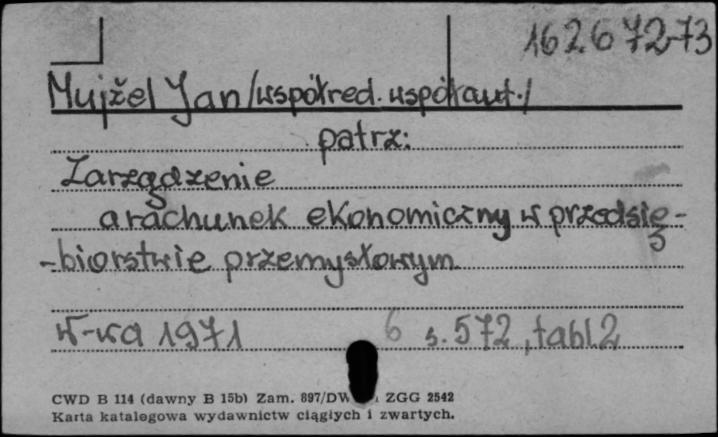 162672-73
Mujżel Jan /współred. współaut./
patrz:
Zarządzenie
a rachunek ekonomiczny w przedsię-
-biorstwie przemysłowym
W-wa 1971 6 s. 572, tabl 2
CWD B 114 (dawny B 15b) Zam. 897/DW ZGG 2542
Karta katalogowa wydawnictw ciągłych i zwartych.